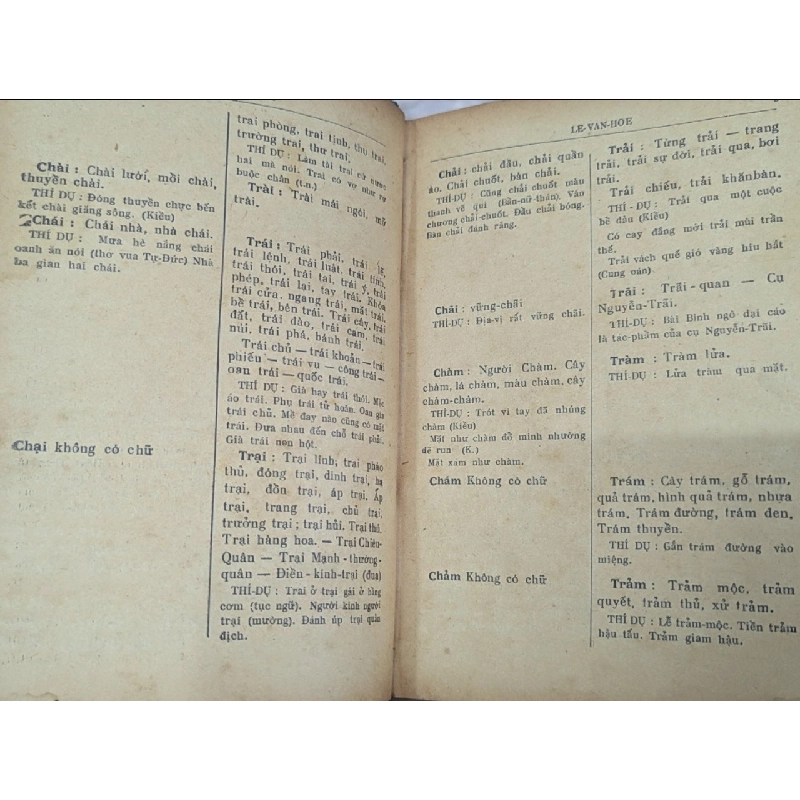 Chài : Chài lưới, mồi chài,
thuyền chài.
THÍ DỤ : Đóng thuyền chực bến
kết chài giăng sông. (Kiều)
Chái : Chái nhà, nhà chái.
THÍ DỤ : Mưa hè nắng chái
oanh ăn nói (thơ vua Tự-Đức) Nhà
ba gian hai chái.
Chại không có chữ
trai phòng, trai tịnh, thư trai,
trường trai, thư trai.
THÍ DỤ : Làm tài trai cứ nước
hai mà nói. Trai có vợ như rợ
buộc chân (t.n.)
Trài : Trài mái ngói, mỡ
trài.
Trái : Trái phải, trái
trái lệnh, trái luật, trái tính,
trái thói, trái tai, trái ý, trái
phép, trái lại, tay trái. Khóa
trái cửa, ngang trái, mặt trái,
bề trái, bên trái. Trái cây, trái
đất, trái đào, trái cam, trái
núi, trái phá, bánh trái.
Trái chủ — trái khoán — trái
phiếu — trái vụ — công trái —
oan trái — quốc trái.
THÍ DỤ : Già hay trái thói. Mặc
áo trái. Phụ trái tử hoàn. Oan gia
trái chủ. Mề đay nào cũng có mặt
trái. Đưa nhau đến chỗ trái phải.
Già trái non hột.
Trại : Trại lính, trai pháo
thủ, đóng trại, dinh trại, hạ
trại, đồn trại, áp trại. Ấp
trại, trang trại, chủ trại,
trưởng trại ; trại hủi. Trại thi.
Trại hàng hoa. — Trại Chiêu-
Quân — Trại Mạnh - thường-
quân — Điền - kinh-trại (đua)
THÍ-DỤ : Trai ở trại gái ở hàng
cơm (tục ngữ). Người kinh người
trại (mường). Đánh úp trại quân
địch.
LE-VAN-HOE
Chải : chải đầu, chải quần
áo. Chải chuốt, bàn chải.
THÍ-DỤ : Cũng chải chuốt màu
thanh vẻ quí (Bần-nữ-thán). Văn
chương chải-chuốt. Đầu chải bóng.
Bàn chải đánh răng.
Chãi : vững-chãi
THÍ-DỤ : Địa-vị rất vững chãi.
Chàm : Người Chàm. Cây
chàm, lá chàm, màu chàm, cây
chàm-chàm.
THÍ-DỤ : Trót vì tay đã nhúng
chàm (Kiều)
Mặt như chàm đổ mình nhường
dẽ run (K.)
Mặt xám như chàm.
Chám Không có chữ
Chảm Không có chữ
Trải : Từng trải — trang
trải, trải sự đời, trải qua, bơi
trải.
Trải chiếu, trải khănbàn.
THÍ DỤ : Trải qua một cuộc
bể dâu (Kiều)
Có cay đắng mới trải mùi trần
thế.
Trải vách quế gió vàng hiu hắt
(Cung oán).
Trãi : Trãi - quan — Cụ
Nguyễn-Trãi.
THÍ-DỤ : Bài Bình ngô đại cáo
là tác-phẩm của cụ Nguyễn-Trãi.
Tràm : Tràm lửa.
THÍ DỤ : Lửa tràm qua mặt.
Trám : Cây trám, gỗ trám,
quả trám, hình quả trám, nhựa
trám. Trám đường, trám đen.
Trám thuyền.
THÍ DỤ : Gắn trám đường vào
miệng.
Trảm : Trảm mộc, trảm
quyết, trảm thủ, xử trảm.
THÍ DỤ : Lễ trảm-mộc. Tiền trảm
hậu tấu. Trảm giam hậu.